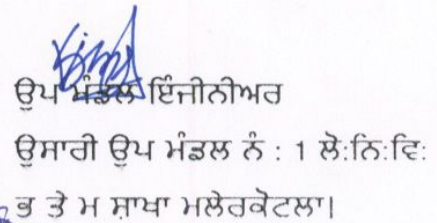 ਉਪ ਮੰਡਲ ਇੰਜੀਨੀਅਰ
ਉਸਾਰੀ ਉਪ ਮੰਡਲ ਨੰ : 1 ਲੋ:ਨਿ:ਵਿ:
ਭ ਤੇ ਮ ਸ਼ਾਖਾ ਮਲੇਰਕੋਟਲਾ|